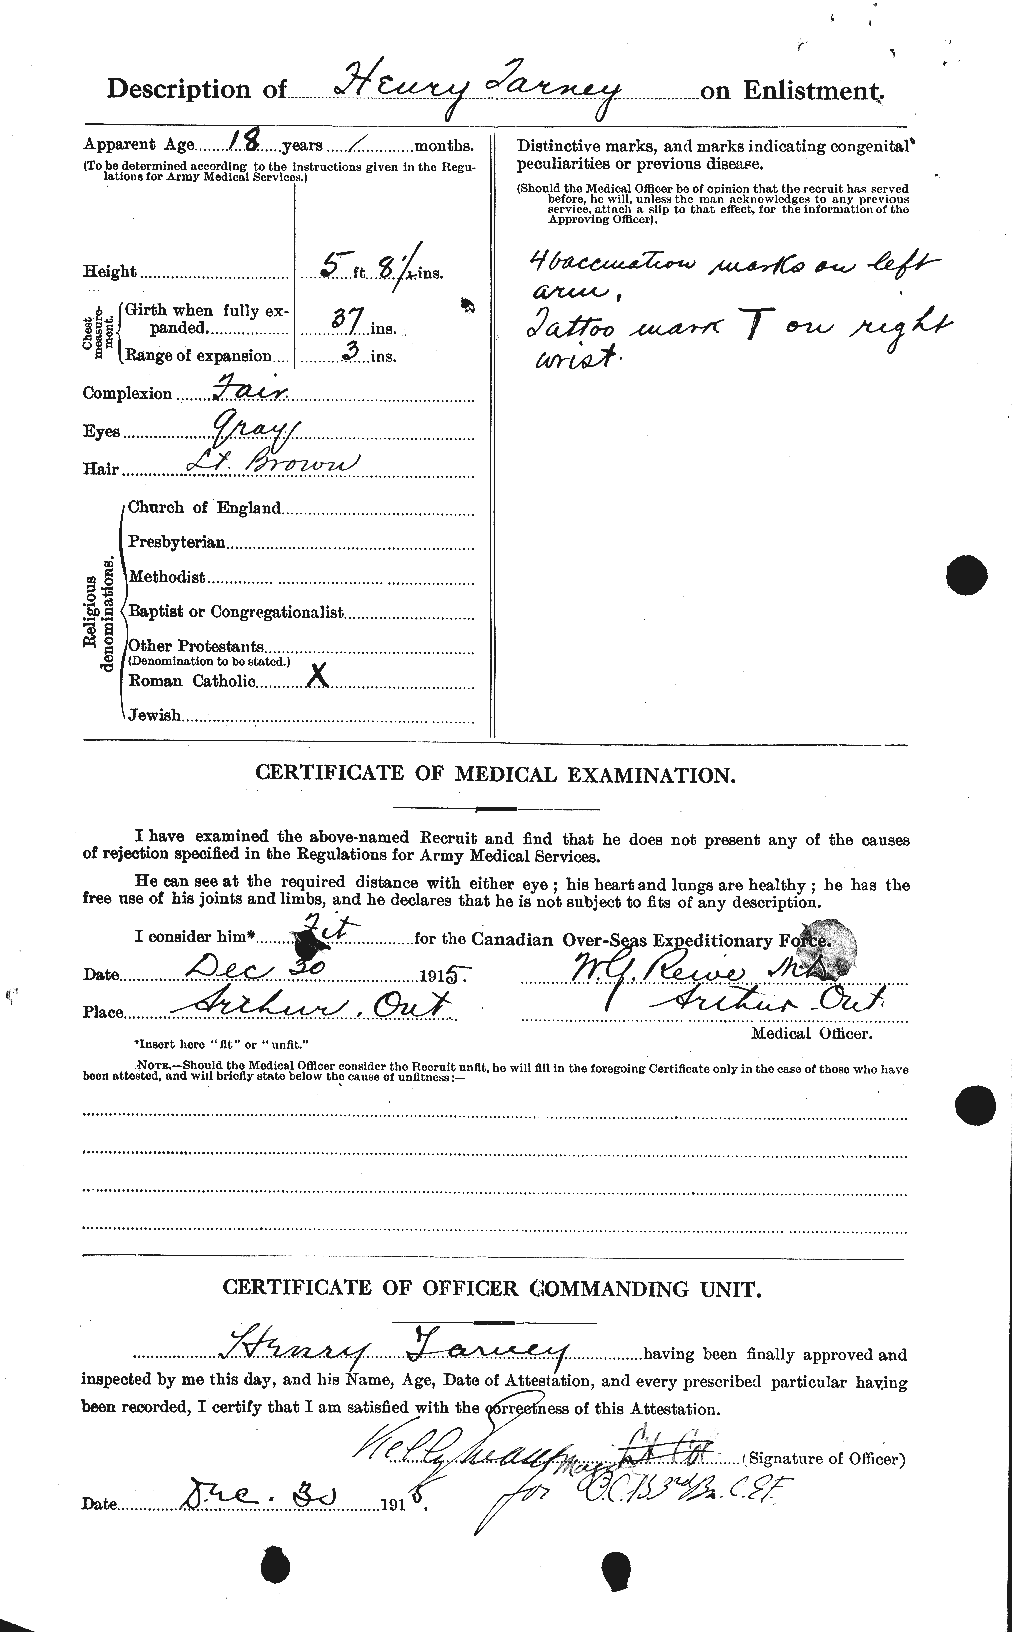 Description of Henry Tarney on Enlistment.
Apparent Age 18 years 1 months.
(To be determined according to the instructions given in the Regu-
lations for Army Medical Services.)
Height 5 ft 8 1/2 ins.
Chest measure-ment.
Girth when fully ex-
panded 37 ins.
Range of expansion 3 ins.
Complexion Fair
Eyes Gray
Hair Lt. Brown
Religious denominations.
Church of England
Presbyterian
Methodist
Baptist or Congregationalist
Other Protestants
(Denomination to be stated.)
Roman Catholic X
Jewish
Distinctive marks, and marks indicating congenital
peculiarities or previous disease.
(Should the Medical Officer be of opinion that the recruit has served
before, he will, unless the man acknowledges to any previous
service, attach a slip to that effect, for the information of the
Approving Officer).
4 vaccination marks on left
arm,
Tattoo mark T on right
wrist.
CERTIFICATE OF MEDICAL EXAMINATION.
I have examined the above-named Recruit and find that he does not present any of the causes
of rejection specified in the Regulations for Army Medical Services.
He can see at the required distance with either eye; his heart and lungs are healthy; he has the
free use of his joints and limbs, and he declares that he is not subject to fits of any description.
I consider him* Fit for the Canadian Over-Seas Expeditionary Force.
Date Dec 30 1915.
Place Arthur, Ont
M.D.
Arthur Ont
Medical Officer.
*Insert here "fit" or "unfit."
NOTE.—Should the Medical Officer consider the Recruit unfit, he will fill in the foregoing Certificate only in the case of those who have
been attested, and will briefly state below the cause of unfitness:—
CERTIFICATE OF OFFICER COMMANDING UNIT.
Henry Tarney having been finally approved and
inspected by me this day, and his Name, Age, Date of Attestation, and every prescribed particular having
been recorded, I certify that I am satisfied with the correctness of this Attestation.
Major Lt Col (Signature of Officer)
for O.C. 153rd Bn. C.E.F.
Date Dec. 30 1915.